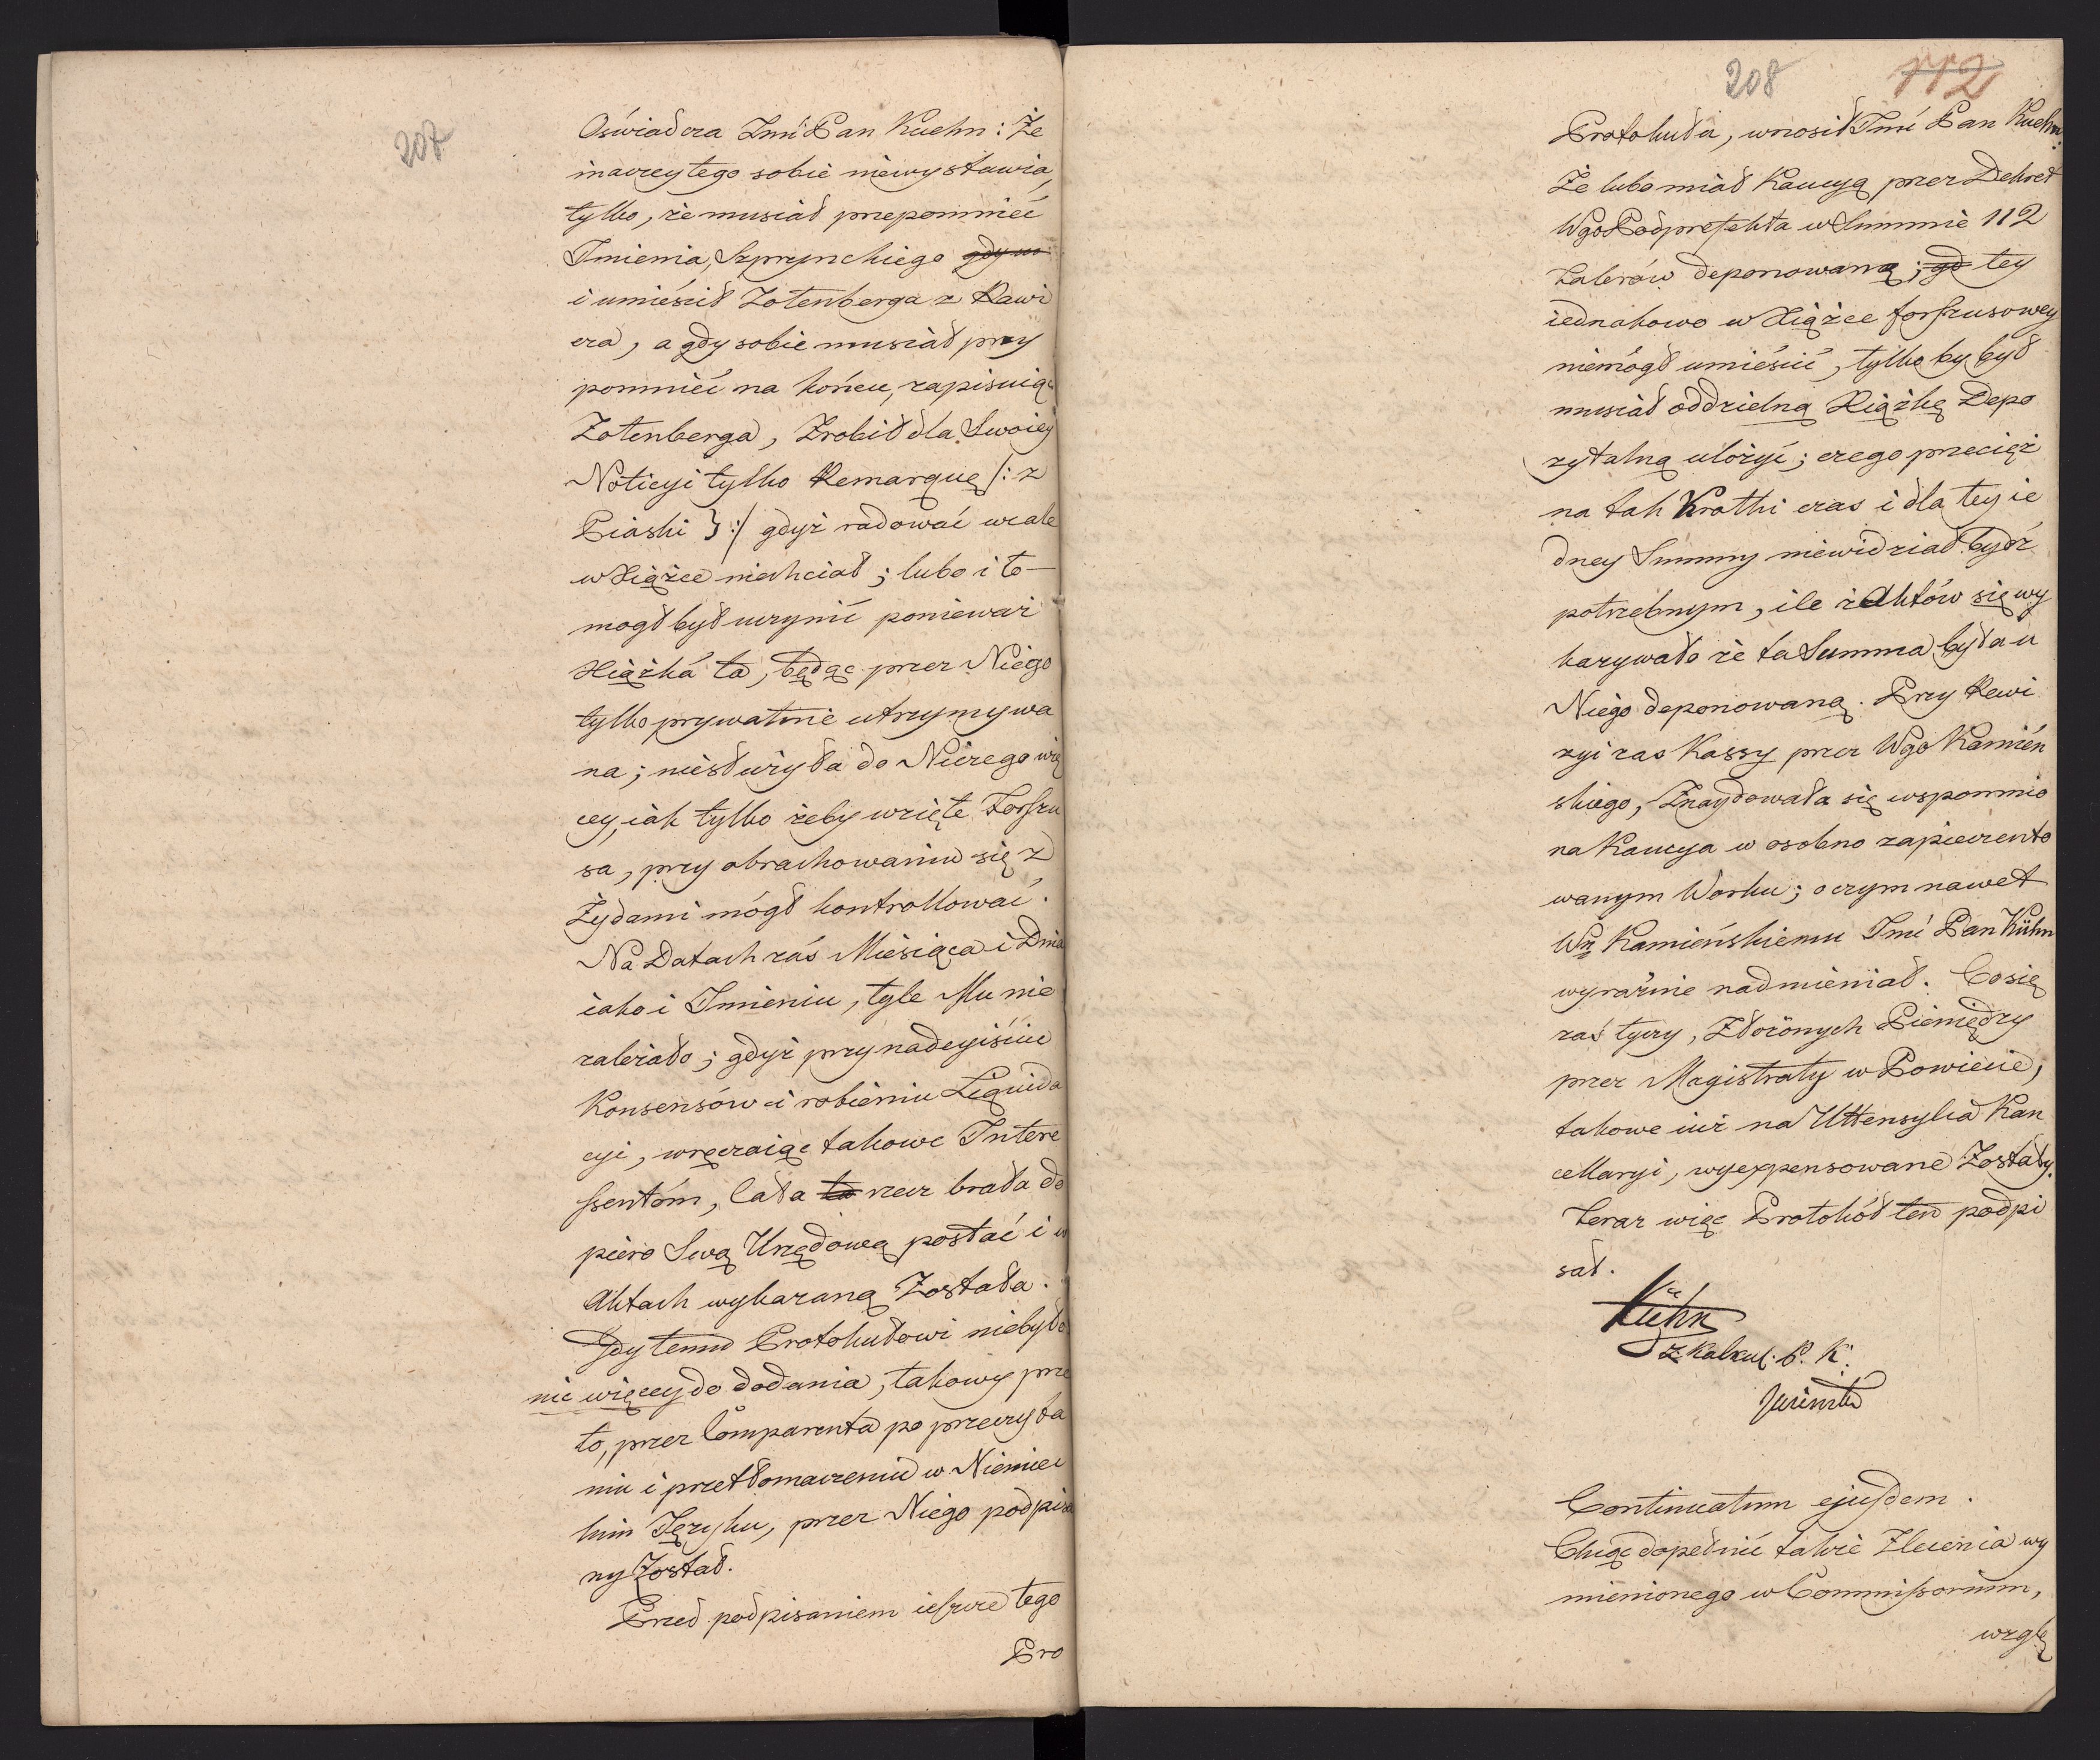 207
Oświadcza Jmć Pan Kuehn: Że
inaczey tego sobie niewystawia,
tylko, że musiał przepomnieć
Imienia, Szprynckiego gdy w
i umieścił Zotenberga z Rawi
cza, a gdy sobie musiał przy
pomnieć na końcu, zapisuiąc
Zotenberga, Zrobił dla Swoiey
Noticyi tylko Remarquę /: z
Piaski } :/ gdyż radować wcale
w Xiążce niechciał; lubo i to
mogł był uczynić ponieważ
Xiążka ta, będąc przez Niego
tylko prywatnie utrzymywa
na; niesłużyła do Niczego wię
cey, iak tylko żeby wzięte Forszu
sa, przy obrachowaniu się z
Żydami mógł kontrollować.
Na Datach zaś Miesiąca i Dnia
iako i Imieniu, tyle Mu nie
zależało; gdyż przy nadeyiściu
Konsensów i robieniu Liquida
cyi, wręczaiąc takowe Intere
ssentóm, Cała ta rzecz brała do
piero Swą Urzędową postać i w
Aktach wykazaną Została.
Gdy temu Protokułowi niebyło
nic więcey do dodania, takowy prze
to, przez Comparenta po przeczyta
niu i przetłomaczeniu w Niemiec
kim Języku, przez Niego podpisa
ny Został.
Przed podpisaniem ieszcze tego
Pro
208
112
Protokułu, wnosił Jmć Pan Kuehn:
Że lubo miał Kaucyą przez Dekret
Wgo Podprefekta w Summie 112
Talerów deponowaną; gd tey
iednakowo w Xiążce forszusowey
niemógł umieścić, tylko by był
musiał oddzielną Xiążkę Depo
zytalną ułożyć; czego przecięż
na tak Krotki czas i dla tey ie
dney Summy niewidział bydź
potrzebnym, ile z Aktów się wy
kazywało że ta Summa była u
Niego deponowaną. Przy Rewi
zyi zas Kassy przez Wgo Kamień
skiego, Znaydowała się wspomnio
na Kaucya w osobno zapieczęto
wanym Worku; o czym nawet
Wu Kamieńskiemu Jmć Pan Kühn
wyraźnie nadmieniał. Co się
zaś tyczy, Złożonych Pieniędzy
przez Magistraty w Powiecie,
takowe iuż na Uttensylia Kan
cellaryi, wyexpensowane Zostały.
Teraz więc Protokół ten podpi
sał.
Kühn
z Kalkul. P. K.
Continuatum ejusdem.
Chcąc dopełnić także Zlecenia wy
mienionego w Commissorium,
wzglę